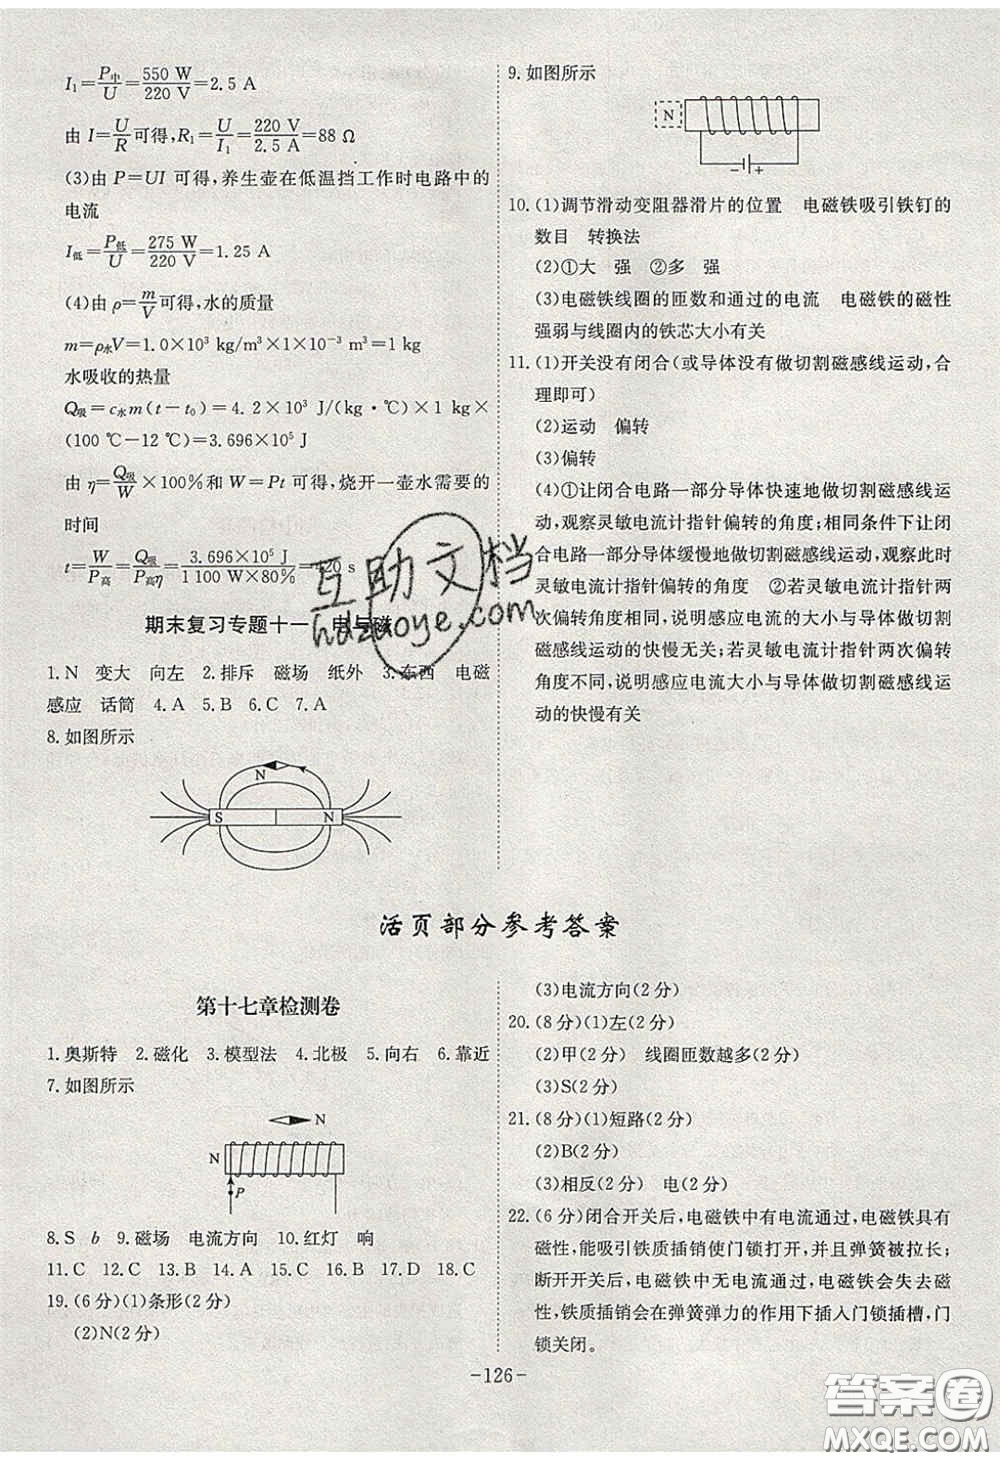 I₁=P中/U=550 W/220 V=2.5 A
由 I=U/R可得,R₁=U/I₁=220 V/2.5 A=88 Ω
(3)由 P=UI 可得,养生壶在低温挡工作时电路中的
电流
I低=P低/U=275 W/220 V=1.25 A
(4)由 ρ=m/V可得,水的质量
m=ρ水V=1.0×10³ kg/m³×1×10⁻³ m³=1 kg
水吸收的热量
Q吸=c水m(t-t₀)=4.2×10³ J/(kg·℃)×1 kg×
(100 ℃-12 ℃)=3.696×10⁵ J
由 η=Q吸/W×100%和 W=Pt 可得,烧开一壶水需要的
时间
t=W/P高=Q吸/P高η=3.696×10⁵ J/1 100 W×80%=420 s
期末复习专题十一 电与磁
1.N 变大 向左 2.排斥 磁场 纸外 3.东西 电磁
感应 话筒 4.A 5.B 6.C 7.A
8.如图所示
N
S N
9.如图所示
N
- +
10.(1)调节滑动变阻器滑片的位置 电磁铁吸引铁钉的
数目 转换法
(2)①大 强 ②多 强
(3)电磁铁线圈的匝数和通过的电流 电磁铁的磁性
强弱与线圈内的铁芯大小有关
11.(1)开关没有闭合(或导体没有做切割磁感线运动,合
理即可)
(2)运动 偏转
(3)偏转
(4)①让闭合电路一部分导体快速地做切割磁感线运
动,观察灵敏电流计指针偏转的角度;相同条件下让闭
合电路一部分导体缓慢地做切割磁感线运动,观察此时
灵敏电流计指针偏转的角度 ②若灵敏电流计指针两
次偏转角度相同,说明感应电流的大小与导体做切割
磁感线运动的快慢无关;若灵敏电流计指针两次偏转
角度不同,说明感应电流大小与导体做切割磁感线运
动的快慢有关
互助文档
hdzuoye.com
活页部分参考答案
第十七章检测卷
1.奥斯特 2.磁化 3.模型法 4.北极 5.向右 6.靠近
7.如图所示
N
N
P
8.S b 9.磁场 电流方向 10.红灯 响
11.C 12.C 13.A 14.B 15.C 16.D 17.A 18.C
19.(6分)(1)条形(2分)
(2)N(2分)
(3)电流方向(2分)
20.(8分)(1)左(2分)
(2)甲(2分) 线圈匝数越多(2分)
(3)S(2分)
21.(8分)(1)短路(2分)
(2)B(2分)
(3)相反(2分) 电(2分)
22.(6分)闭合开关后,电磁铁中有电流通过,电磁铁具有
磁性,能吸引铁质插销使门锁打开,并且弹簧被拉长;
断开开关后,电磁铁中无电流通过,电磁铁会失去磁
性,铁质插销会在弹簧弹力的作用下插入门锁插槽,门
锁关闭。
-126-
答案卷
MXQE.COM